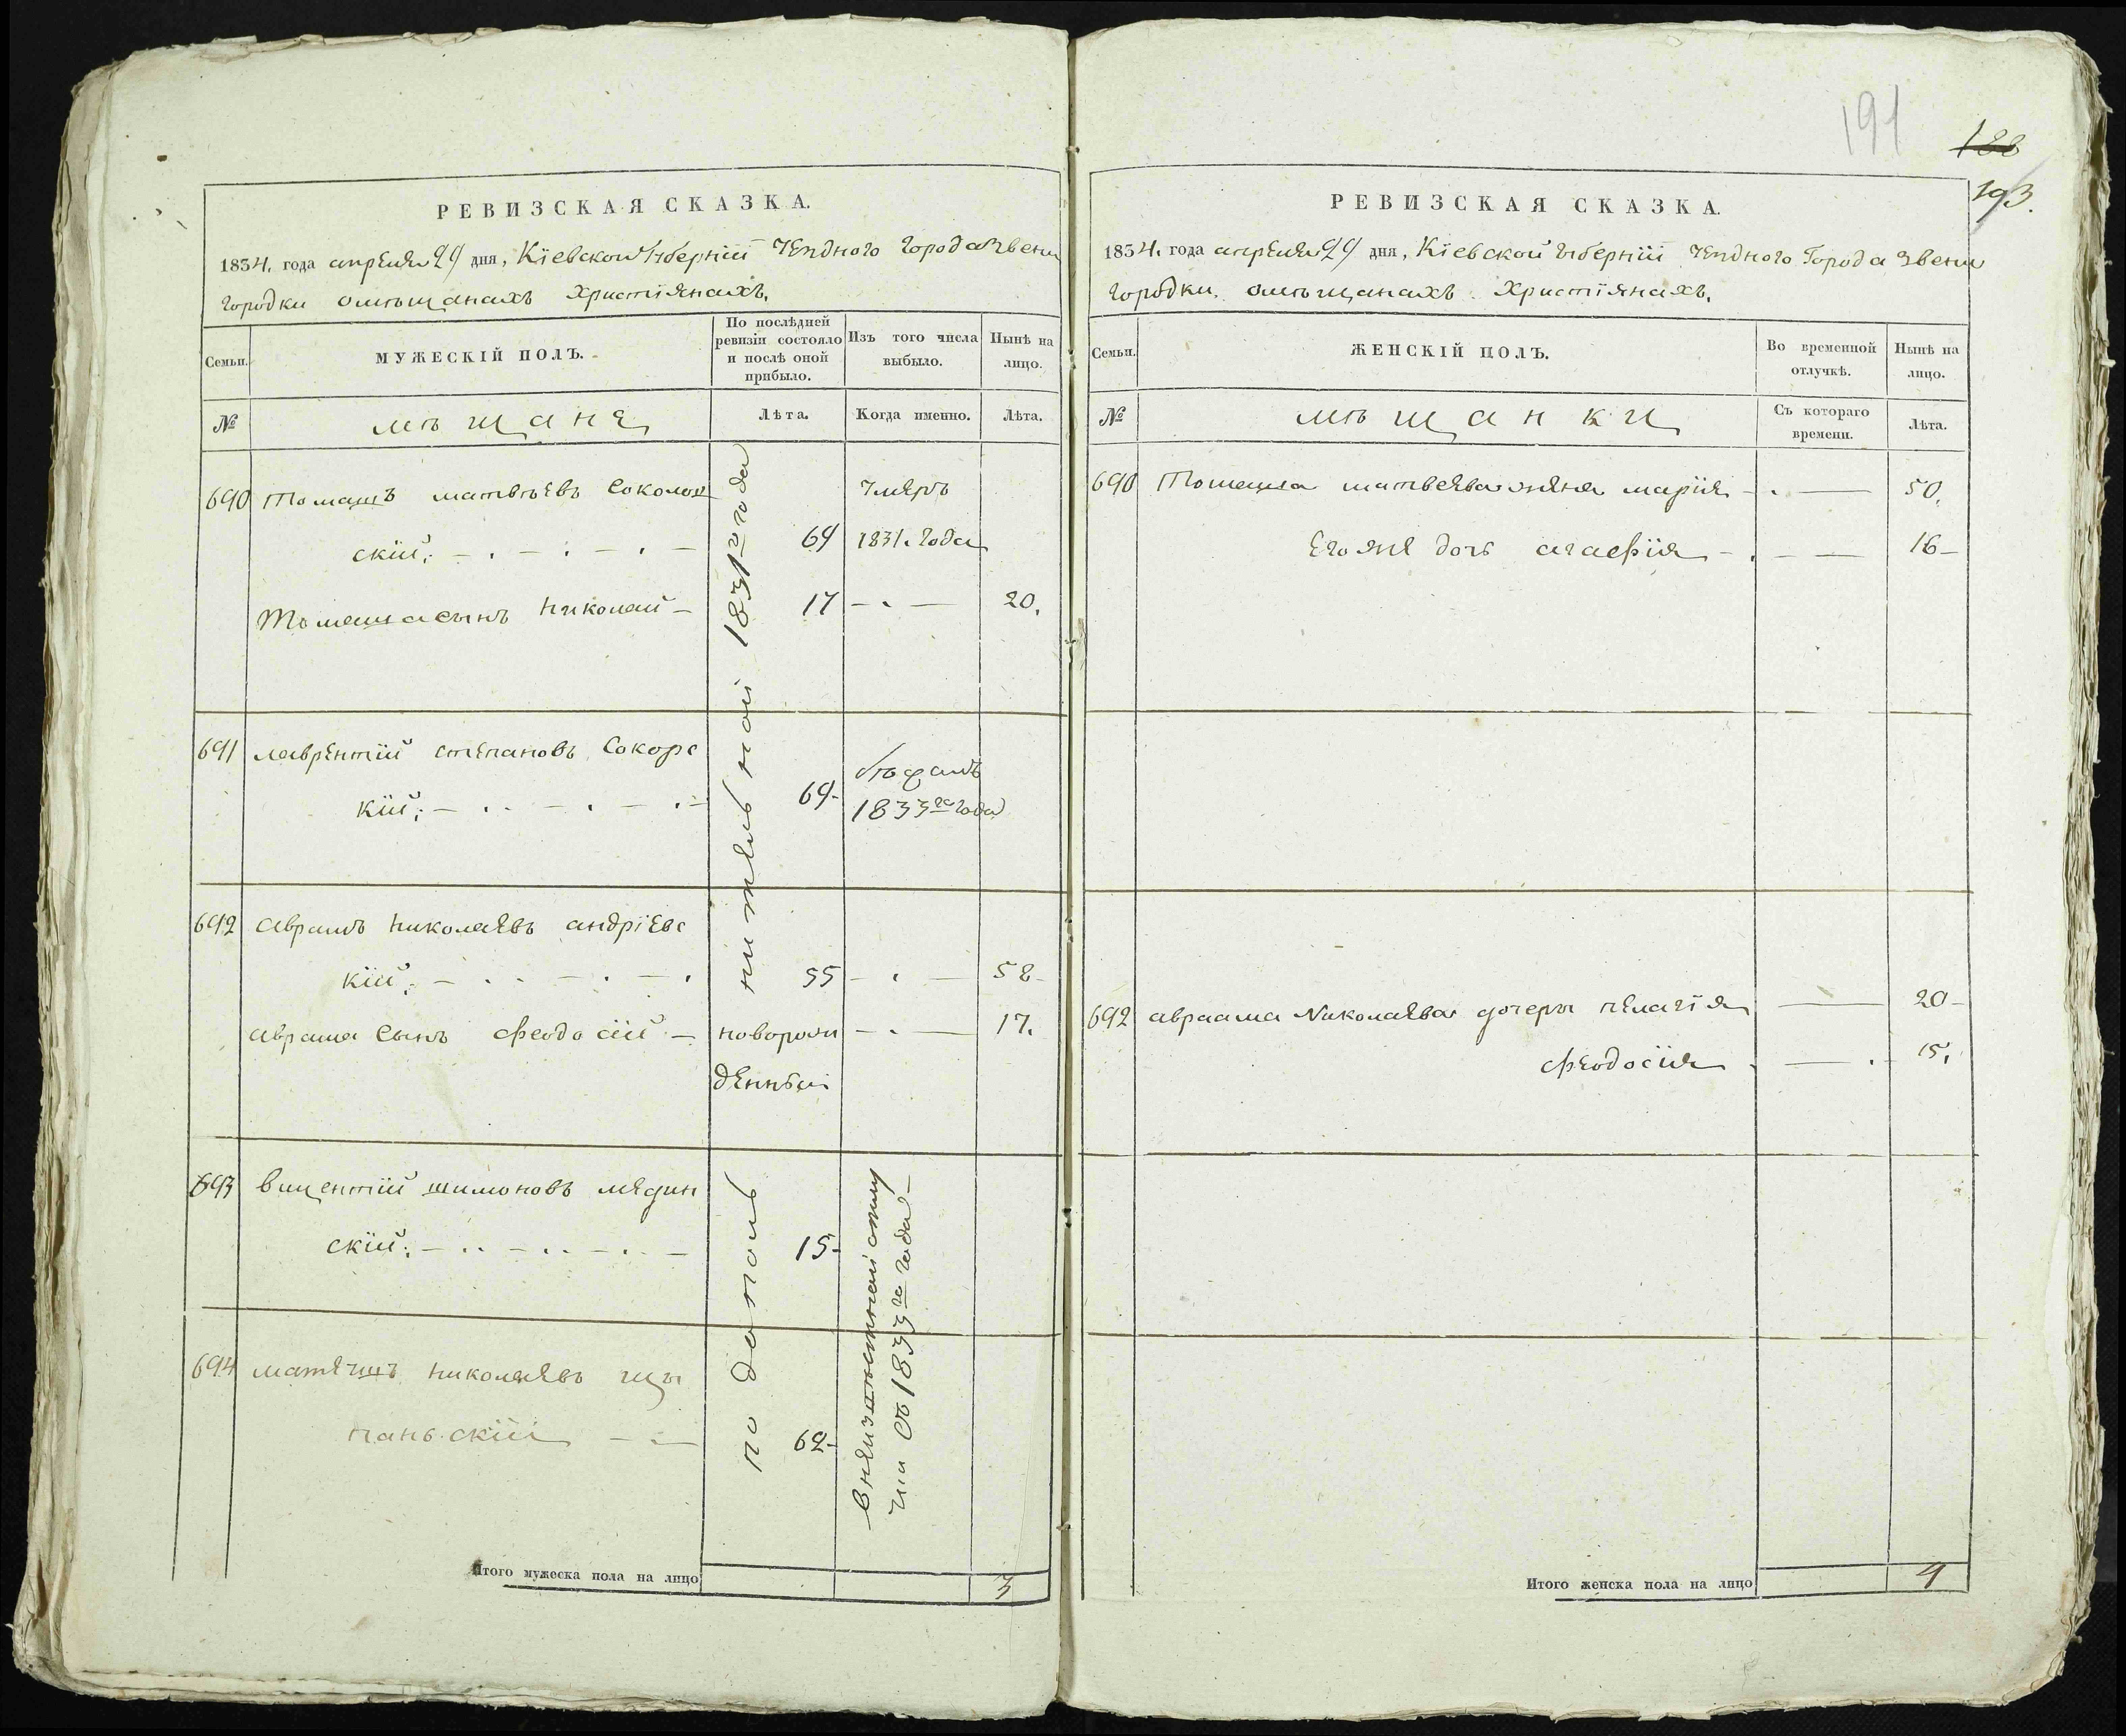 191
188
193.
РЕВИЗСКАЯ СКАЗКА.
1834. года апреля 24 дня, Кіевской Губерніи Уезднаго города Звени
городки омѣщанахъ християнахъ.
Семьи.
МУЖЕСКІЙ ПОЛЪ.
По послѣдней ревизіи состояло и послѣ оной прибыло.
Изъ того числа выбыло.
Нынѣ на лицо.
№
мѣщане
Лѣта.
Когда именно.
Лѣта.
по дополнительной 1831го года
690 Томашъ матвѣевъ Соколов
скій; 64 Умеръ 1831. года
Томаша сынъ николай 17 20.
691 лаврентій степановъ Сокорс
кій; 64 1833го года
692 аврамъ николаевъ андріевс
кій; 55 58
аврама сынъ феодосій новорож
денный 17.
693 вицентій шимоновъ медин
скій; 15
694 николаевъ щы
панъскій 62
в неизвѣстной отлу
чки съ 1833го года
Итого мужеска пола на лицо 3
РЕВИЗСКАЯ СКАЗКА.
1834. года апреля 24 дня, Кіевской Губерніи Уездного Города Звени
городки. омѣщанахъ Християнахъ.
Семьи.
ЖЕНСКІЙ ПОЛЪ.
Во временной отлучкѣ.
Нынѣ на лицо.
№
мѣщанки
Съ котораго времени.
Лѣта.
690 Томаша матвеева жена марія 50.
его дочь агафія 16
692 авраама Николаева дочеры пелагія 20
феодосія 15.
Итого женска пола на лицо 4